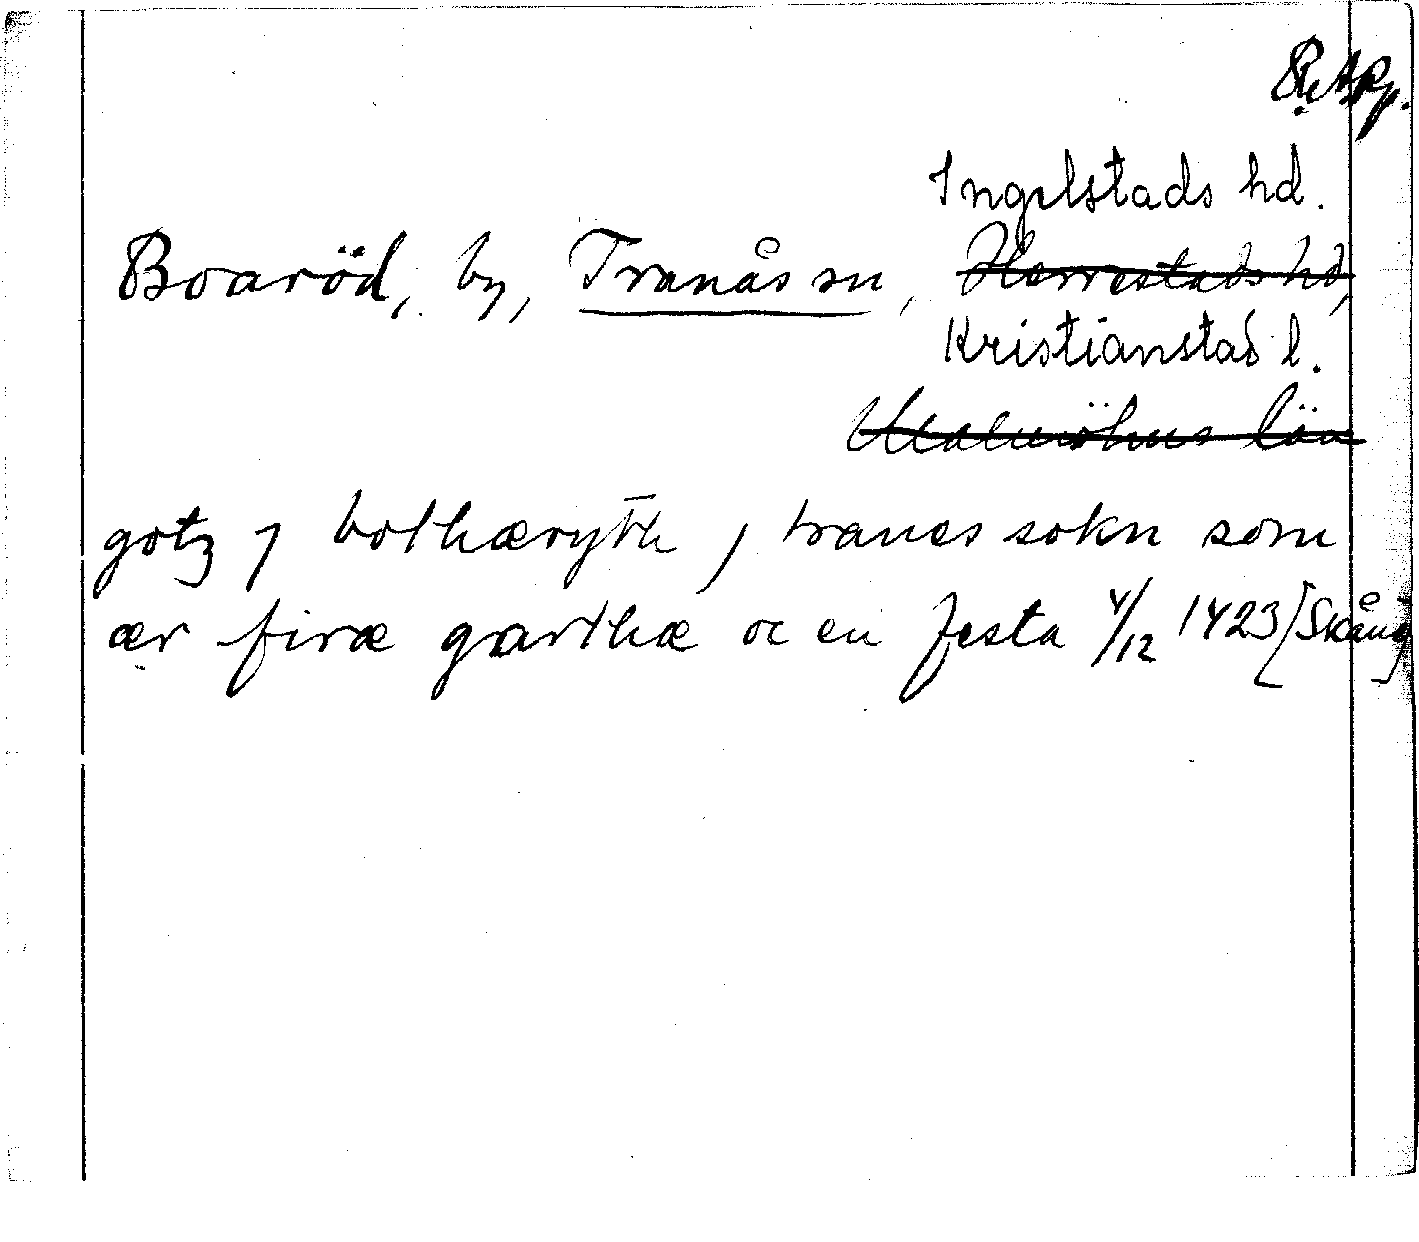 RAp.
Ingelstads hd.
Boaröd, by, Tranås sn, Herrestads hd,
Kristianstad l.
Malmöhus län
gotz j bothæryth j tranes sokn som
ær firæ garthæ oc en festa 4/12 1423 [Skång]